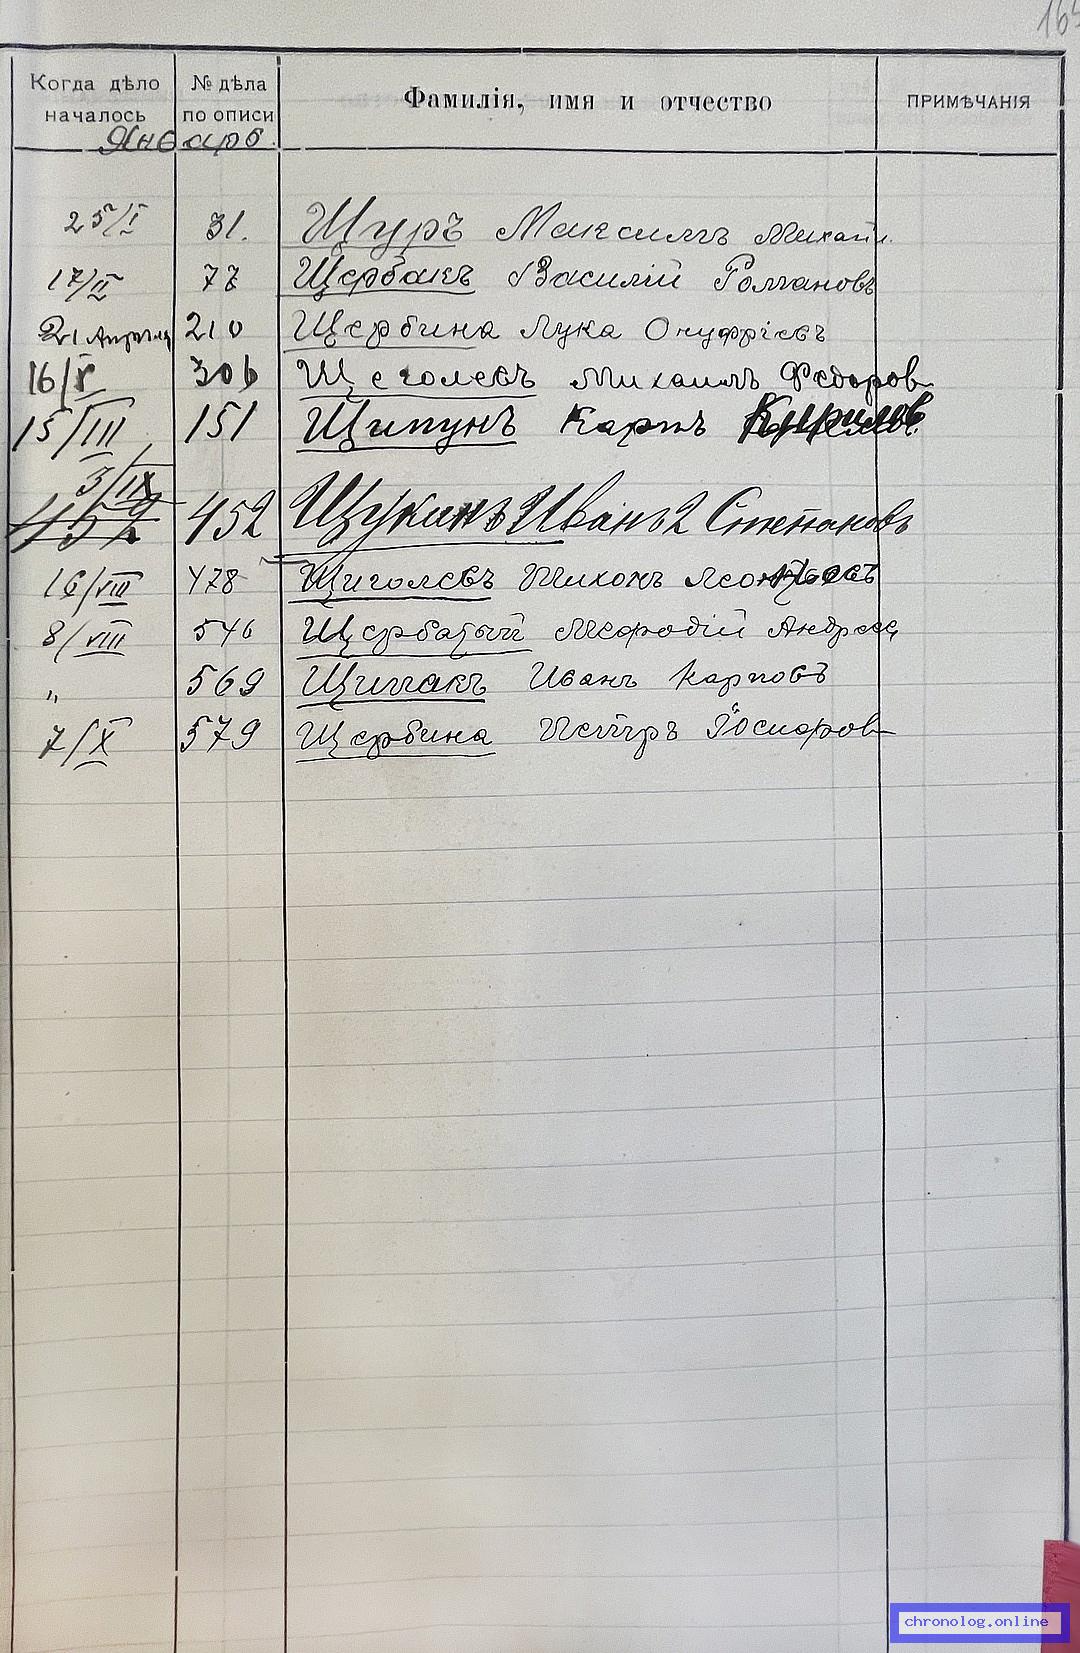 165
Когда дѣло началось № дѣла по описи Фамилія, имя и отчество ПРИМѢЧАНІЯ
Январь.
25/I 31. Щуръ Максимъ Михайл.
17/II 77 Щербакъ Василій Романовъ
21 Апрѣля 210 Щербина Лука Онуфріевъ
16/V 306 Щеголевъ Михаилъ Федоров
15/III 151 Щипунъ Карпъ Кирилов.
3/IX
452 452 Щукинъ Иванъ 2 Степановъ
16/VIII 478 Щиголевъ Тихонъ Леонтьевъ
8/VIII 546 Щербатый Мефодій Андреев
" 569 Щипакъ Иванъ Карповъ
7/X 579 Щербина Петръ Іосифов
chronolog.online